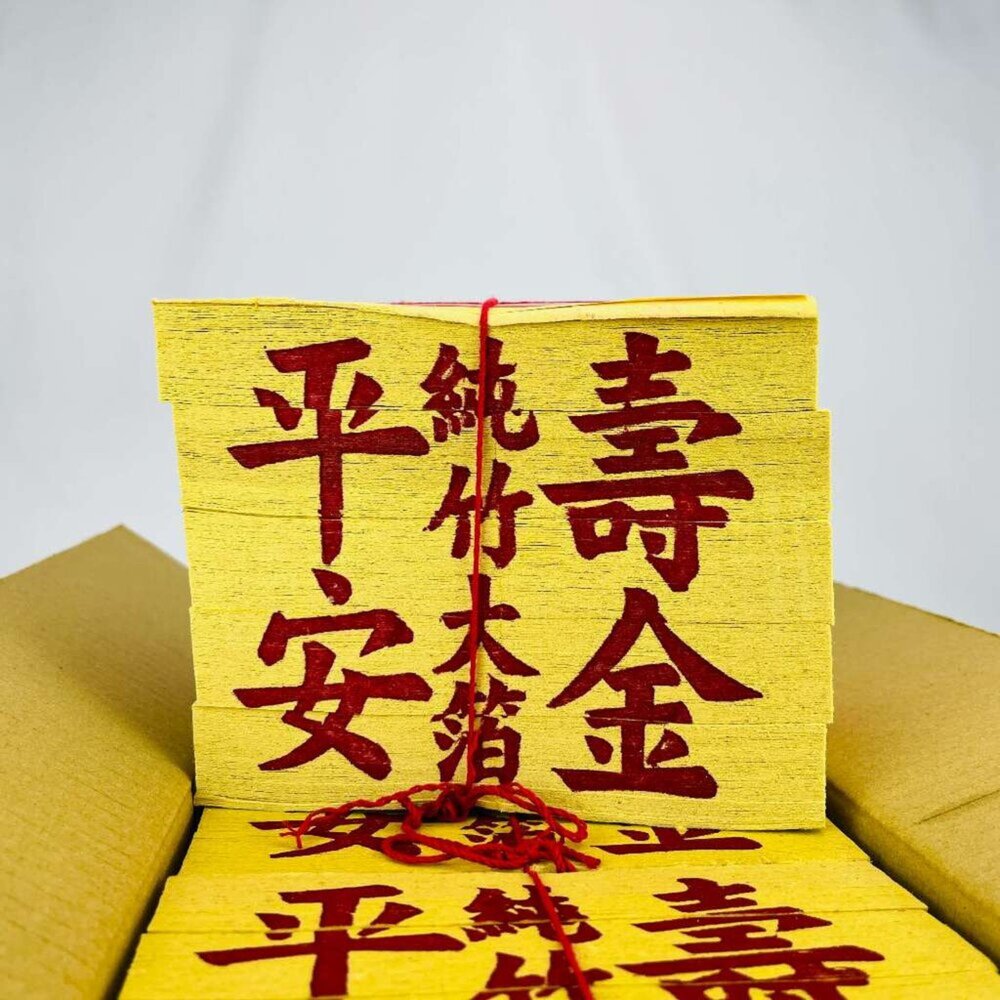 壽金
純竹大箔
平安
安 金
壽
純竹
平